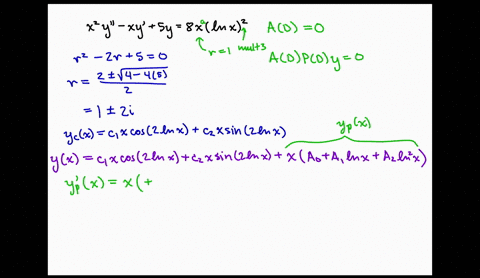 x²y″ − xy′ + 5y = 8x(ln x)²   A(D) = 0
r=1 mult 3
r² − 2r + 5 = 0   A(D)P(D)y = 0
r = (2 ± √(4 − 4(5)))/2
= 1 ± 2i
y_c(x) = c₁x cos(2ln x) + c₂x sin(2ln x)   y_p(x)
y(x) = c₁x cos(2ln x) + c₂x sin(2ln x) + x(A₀ + A₁ ln x + A₂ ln²x)
y_p′(x) = x(+